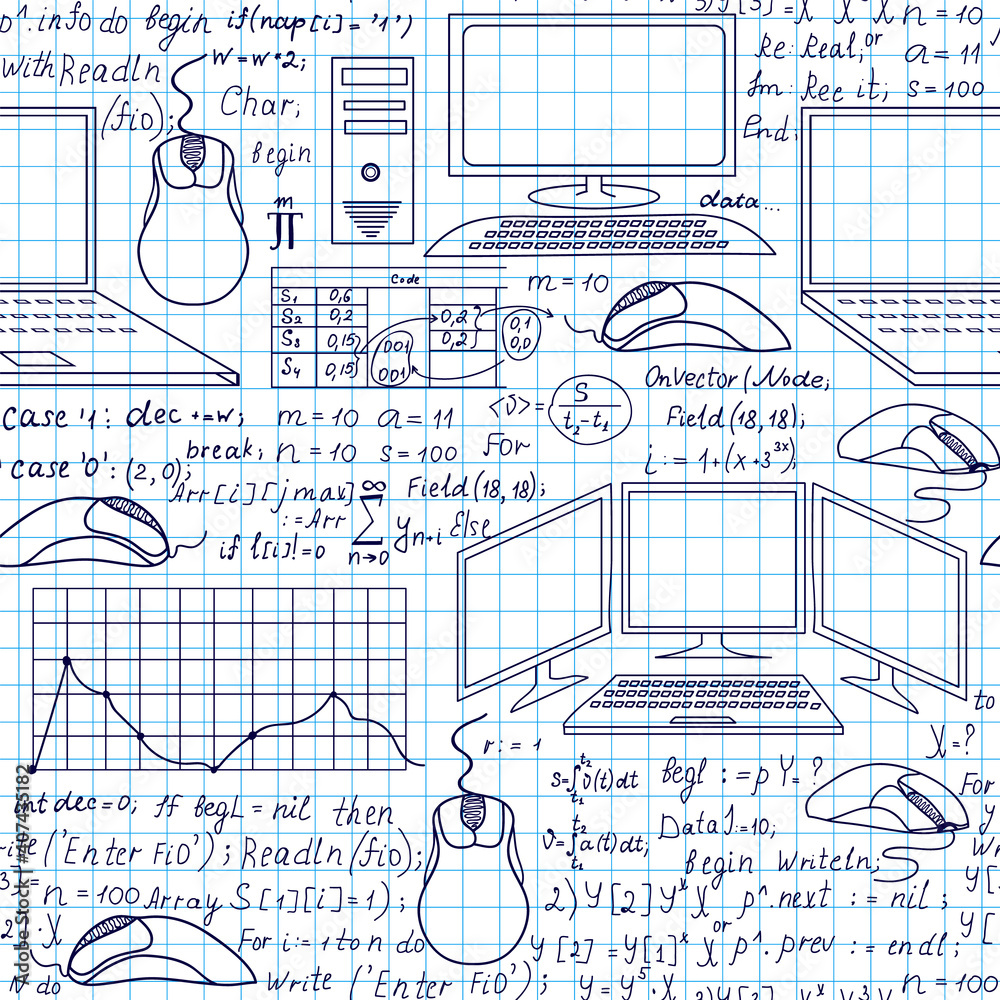 p^.info do begin if(nap[i]='1')
With Readln
(fio);
W=w*2;
Char;
begin
m
π
3)y[3]=X X X n=10
Re: Real; or a=11
Jm: Ree it; s=100
End;
data...
Code
S1 0,6
S2 0,2
S3 0,15
S4 0,15
001
001
0,2
0,2
0,1
0,0
m=10
OnVector(Node;
Field(18,18);
i:=1+(x+3^3x);
case '1: dec +=w; m=10 a=11
<υ>= S
t2-t1
break; n=10 s=100 For
case '0': (2,0);
Arr[i][jmax]
:=Arr
if l[i]!=0
∞
∑ y n+i
n→0
Field(18,18);
Else
to
r:=1
X=?
t2
S=∫υ(t)dt
t1
t2
υ=∫a(t)dt;
t1
begl:=p Y=?
For
y
Data1:=10;
begin Writeln;
int dec=0; If begL=nil then
('Enter FiO'); Readln(fio);
n=100 Array S[1][i]=1);
For i:=1 to n do
N do
Write ('Enter FiO');
2)y[2] y^x X p^.next :=nil;
or
y[2]=y[1]^x X p^.prev :=endl;
y=y^5.X
n=100
Adobe Stock | #407435182
Adobe Stock